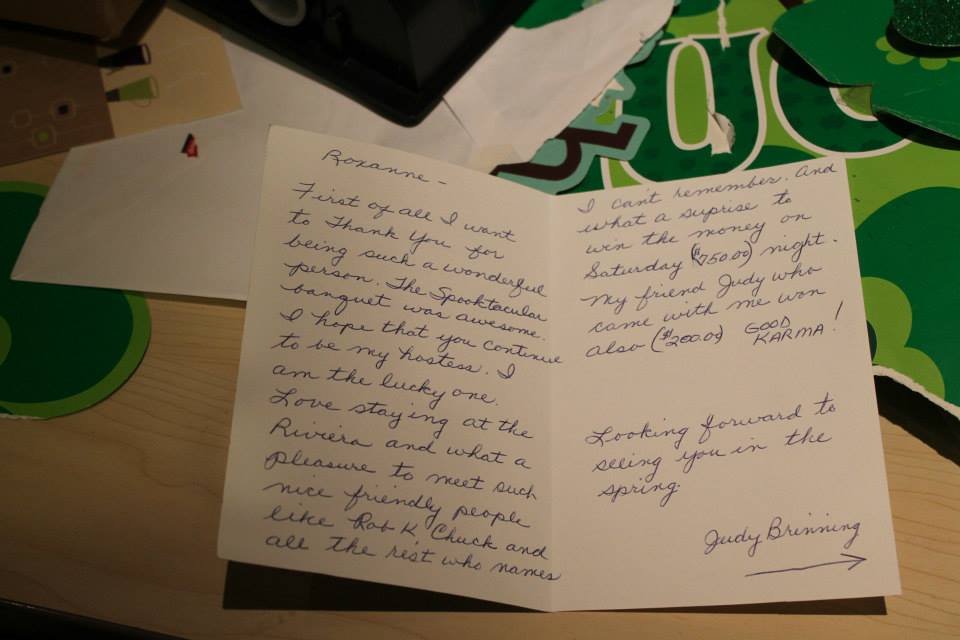 Roxanne -
First of all I want
to Thank You for
being such a wonderful
person. The Spooktacular
banquet was awesome.
I hope that you continue
to be my hostess. I
am the lucky one.
Love staying at the
Riviera and what a
pleasure to meet such
nice friendly people
like Rob K, Chuck and
all the rest who names
I can't remember. And
what a suprise to
win the money on
Saturday ($750.00) night.
My friend Judy who
came with me won
also ($200.00) GOOD
KARMA!
Looking forward to
seeing you in the
spring.
Judy Brinning